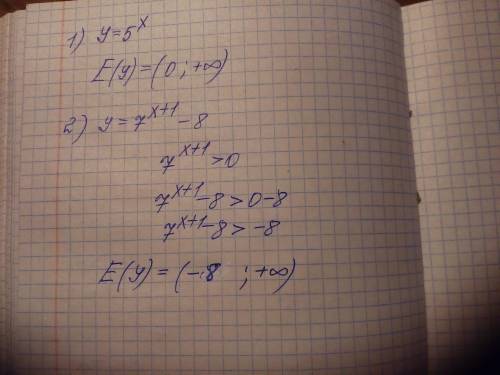 1) y=5^x
E(y)=(0;+∞)
2) y=7^{x+1}-8
7^{x+1}>0
7^{x+1}-8>0-8
7^{x+1}-8>-8
E(y)=(-8;+∞)